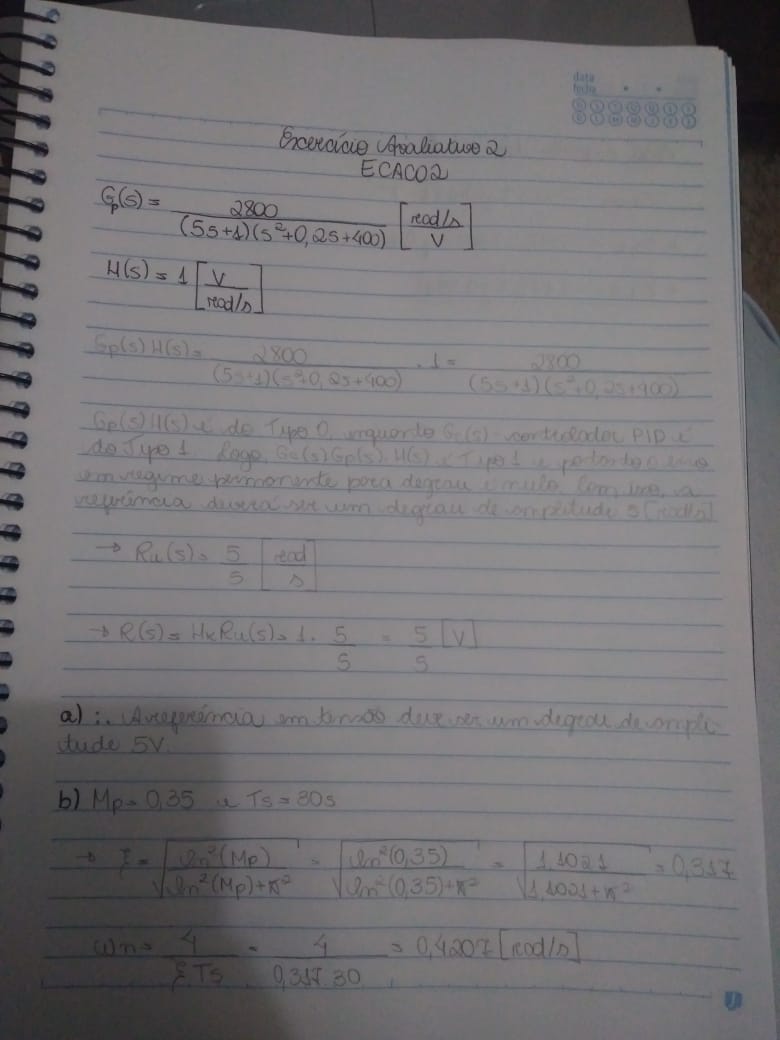 data
fecha
Exercício Avaliativo 2
ECAC02
Gp(s) = 2800 / (5s+1)(s²+0,2s+400) [rad/s / V]
H(s) = 1 [V / rad/s]
Gp(s)H(s) = 2800 / (5s+1)(s²+0,2s+400) . 1 = 2800 / (5s+1)(s²+0,2s+400)
Gp(s)H(s) é do Tipo 0, enquanto Gc(s) - controlador PID é
do Tipo 1. Logo, Gc(s)Gp(s).H(s) é Tipo 1 e portanto o erro
em regime permanente para degrau é nulo. Com isso, a
referência deverá ser um degrau de amplitude 5 [rad/s]
→ Ru(s) = 5 / s [rad / s]
→ R(s) = HxRu(s) = 1 . 5 / s = 5 / s [V]
a) ∴ A referência em tensão deve ser um degrau de ampli-
tude 5V.
b) Mp = 0,35 e Ts = 30s
→ ξ = √(ln²(Mp) / ln²(Mp)+π²) = √(ln²(0,35) / ln²(0,35)+π²) = √(1,1021 / 1,1021+π²) = 0,317
ωn = 4 / ξ.Ts = 4 / 0,317.30 = 0,4207 [rad/s]